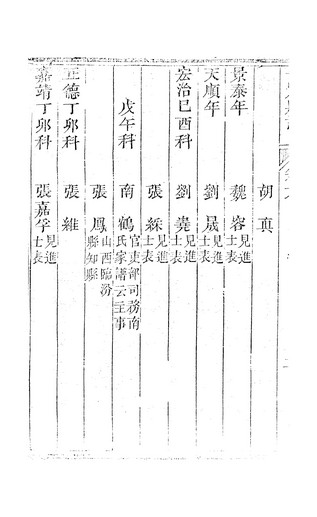 胡真
景泰年 魏容 見進士表
天順年 劉晟 見進士表
宏治己酉科 劉堯 見進士表
張綵 見進士表
戊午科 南鶴 官吏部司務南氏家譜云主事
張鳳 山西臨汾縣知縣
正德丁卯科 張維
嘉靖丁卯科 張嘉孚 見進士表